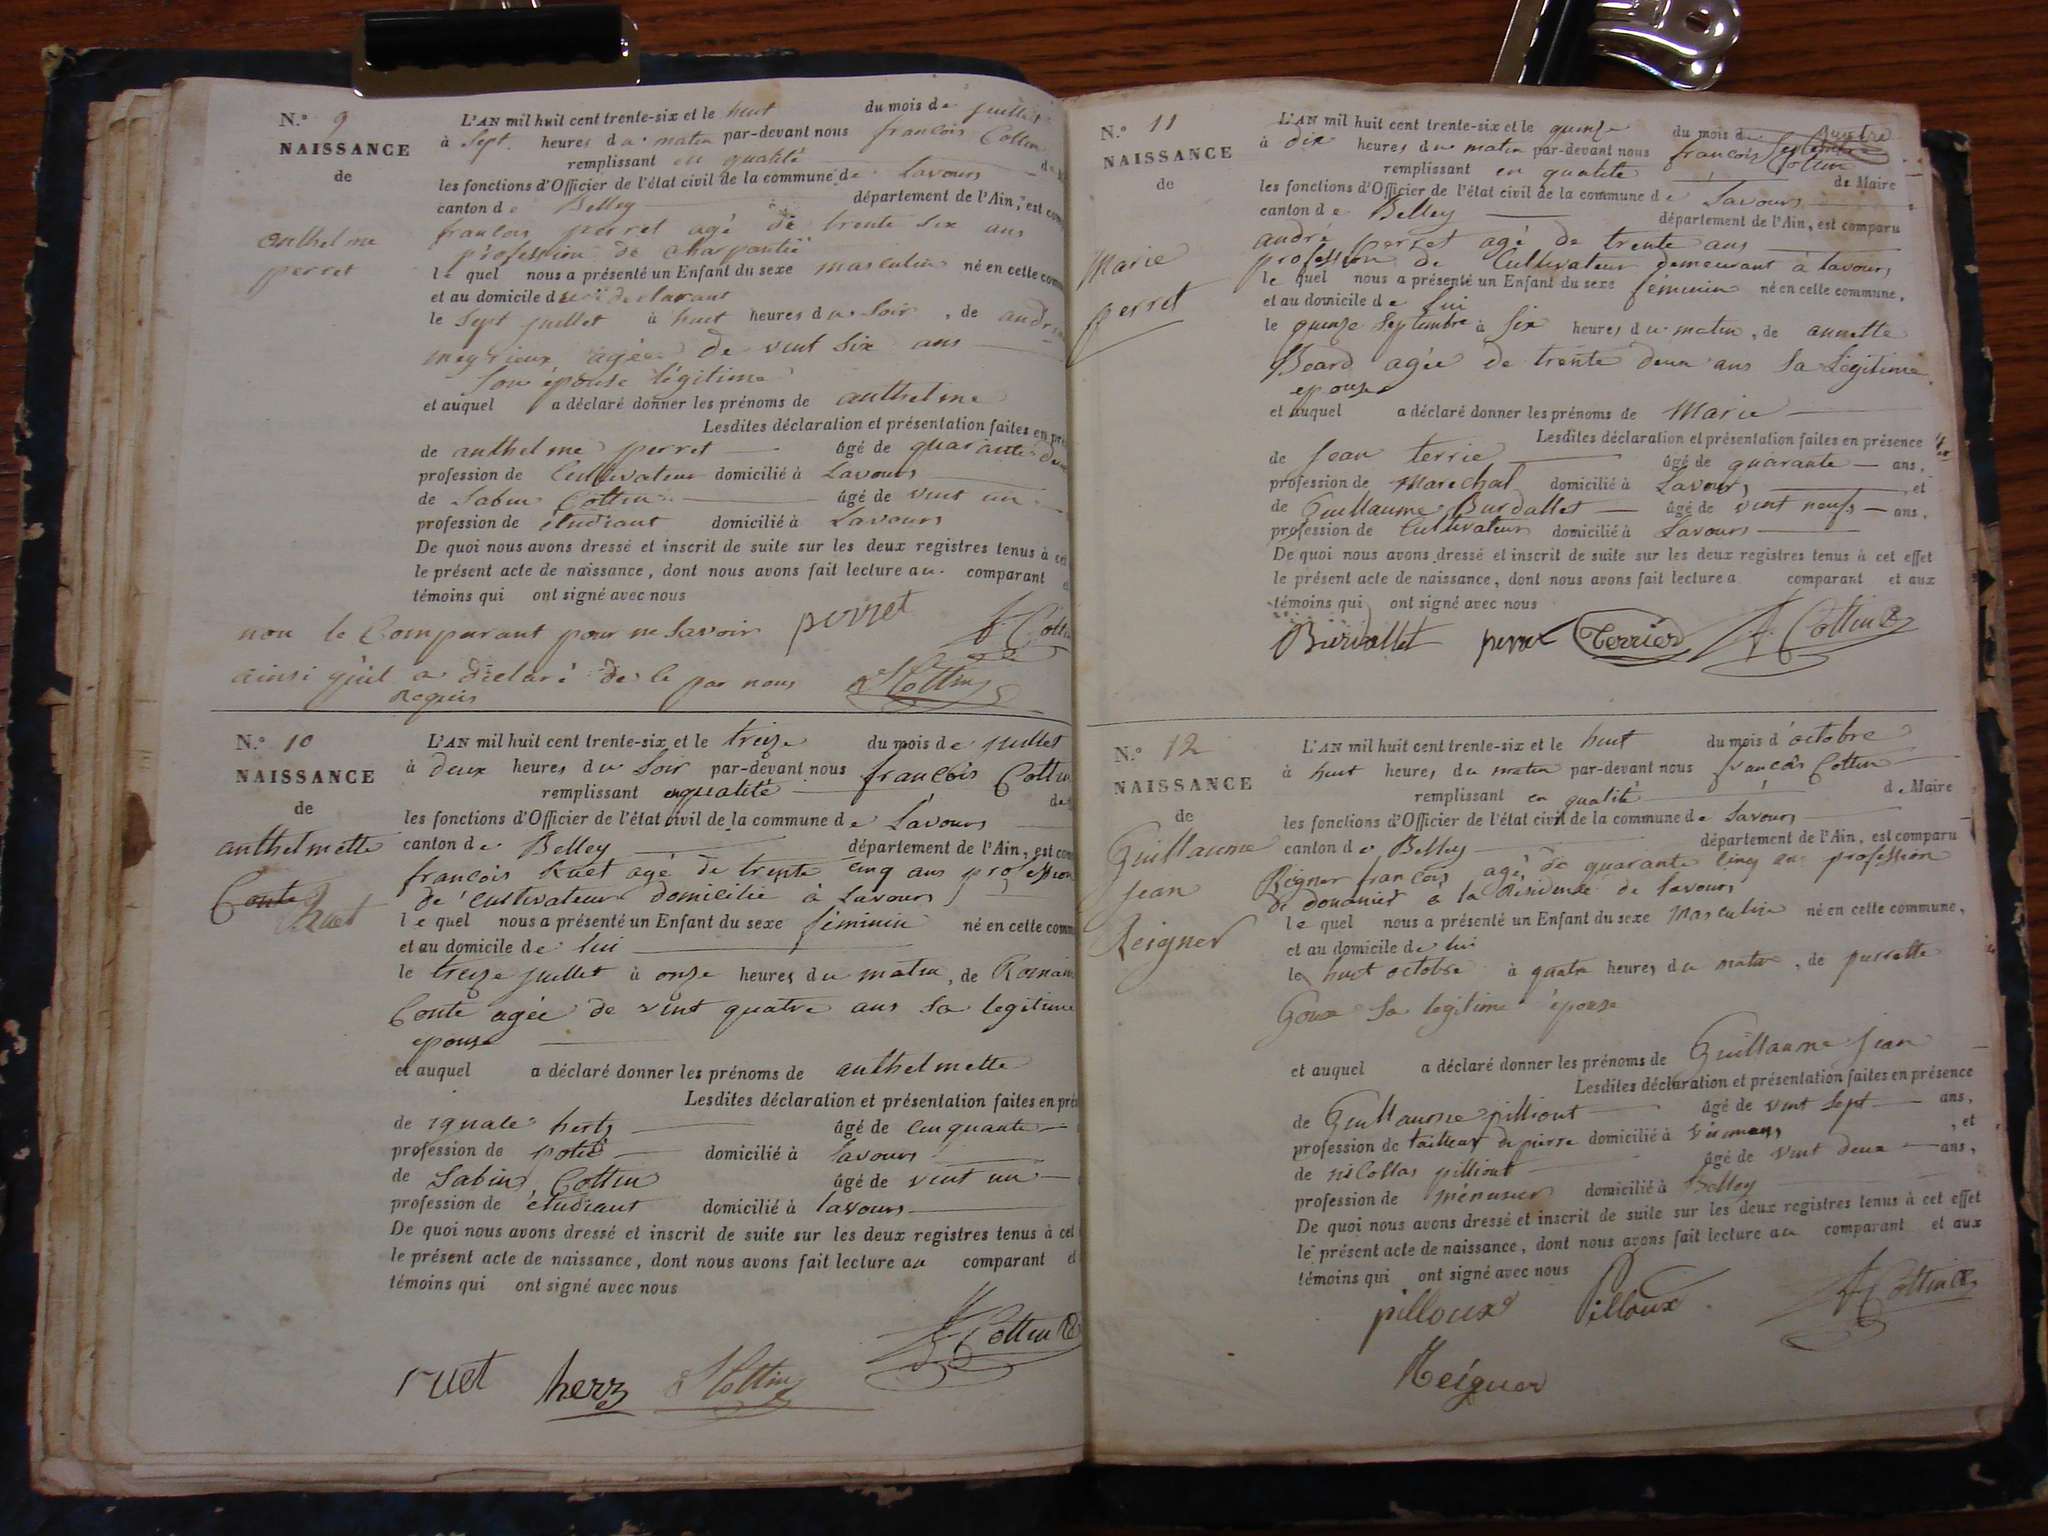 N.° 9
NAISSANCE
de
anthelme
perret
L'AN mil huit cent trente-six et le huit du mois de juillet
à Sept heures du matin par-devant nous françois Cottin
remplissant en qualité
les fonctions d'Officier de l'état civil de la commune de Lavours
canton de Belley département de l'Ain, est
françois perret agé de trente six ans
profession de charpentié
le quel nous a présenté un Enfant du sexe masculin né en cette
et au domicile du declarant
le Sept juillet à huit heures du Soir, de
meyrieux agée de vint Six ans
Son épouse légitime
et auquel a déclaré donner les prénoms de anthelme
Lesdites déclaration et présentation faites en
de anthelme perret âgé de quarante
profession de Cultivateur domicilié à Lavours
de Sabin Cottin âgé de vint un
profession de étudiant domicilié à Lavours
De quoi nous avons dressé et inscrit de suite sur les deux registres tenus à
le présent acte de naissance, dont nous avons fait lecture au comparant
témoins qui ont signé avec nous
non le Comparant pour ne Savoir perret
ainsi qu'il a déclaré de le par nous Cottin
Requis
N.° 10
NAISSANCE
de
anthelmette
Conte
Ruet
L'AN mil huit cent trente-six et le treize du mois de juillet
à deux heures du Soir par-devant nous françois
remplissant en qualité
les fonctions d'Officier de l'état civil de la commune de Lavours
canton de Belley département de l'Ain, est
françois Ruet agé de trente cinq ans profession
de cultivateur domicilié à Lavours
le quel nous a présenté un Enfant du sexe féminin né en cette
et au domicile de lui
le treize juillet à onze heures du matin, de
Conte agée de vint quatre ans sa legitime
epouse
et auquel a déclaré donner les prénoms de anthelmette
Lesdites déclaration et présentation faites en
de ignace hertz âgé de cinquante
profession de potié domicilié à Lavours
de Sabin Cottin âgé de vint un
profession de étudiant domicilié à lavours
De quoi nous avons dressé et inscrit de suite sur les deux registres tenus à cet
le présent acte de naissance, dont nous avons fait lecture au comparant
témoins qui ont signé avec nous
Cottin
ruet herz Cottin
N.° 11
NAISSANCE
de
Marie
perret
L'AN mil huit cent trente-six et le quinze du mois de Septembre
à dix heures du matin par-devant nous françois Cottin
remplissant en qualité de Maire
les fonctions d'Officier de l'état civil de la commune de Lavours
canton de Belley département de l'Ain, est comparu
andré perret agé de trente ans
profession de Cultivateur demeurant à Lavours
le quel nous a présenté un Enfant du sexe féminin né en cette commune,
et au domicile de lui
le quinze Septembre à Six heures du matin, de annette
Beard agée de trente deux ans Sa Légitime
epouse
et auquel a déclaré donner les prénoms de Marie
Lesdites déclaration et présentation faites en présence
de Jean terrie âgé de quarante ans,
profession de Marechal domicilié à Lavours, et
de Guillaume Burdallet âgé de vint neufs ans,
profession de Cultivateur domicilié à Lavours
De quoi nous avons dressé et inscrit de suite sur les deux registres tenus à cet effet
le présent acte de naissance, dont nous avons fait lecture a comparant et aux
témoins qui ont signé avec nous
Burdallet perret Terrier Cottin
N.° 12
NAISSANCE
de
Guillaume
Jean
Reigner
L'AN mil huit cent trente-six et le huit du mois d'octobre
à huit heures du matin par-devant nous françois Cottin
remplissant en qualité de Maire
les fonctions d'Officier de l'état civil de la commune de Lavours
canton de Belley département de l'Ain, est comparu
Reigner françois agé de quarante cinq ans profession
de douanier à la Résidence de Lavours
le quel nous a présenté un Enfant du sexe Masculin né en cette commune,
et au domicile de lui
le huit octobre à quatre heures du matin, de perrette
Goux Sa legitime épouse
et auquel a déclaré donner les prénoms de Guillaume Jean
Lesdites déclaration et présentation faites en présence
de Guillaume pilliout âgé de vint Sept ans,
profession de tailleur de pierre domicilié à, et
de nicollas pilliout âgé de vint deux ans,
profession de ménusier domicilié à Belley
De quoi nous avons dressé et inscrit de suite sur les deux registres tenus à cet effet
le présent acte de naissance, dont nous avons fait lecture au comparant et aux
témoins qui ont signé avec nous
pilloux Pilloux Cottin
Reigner